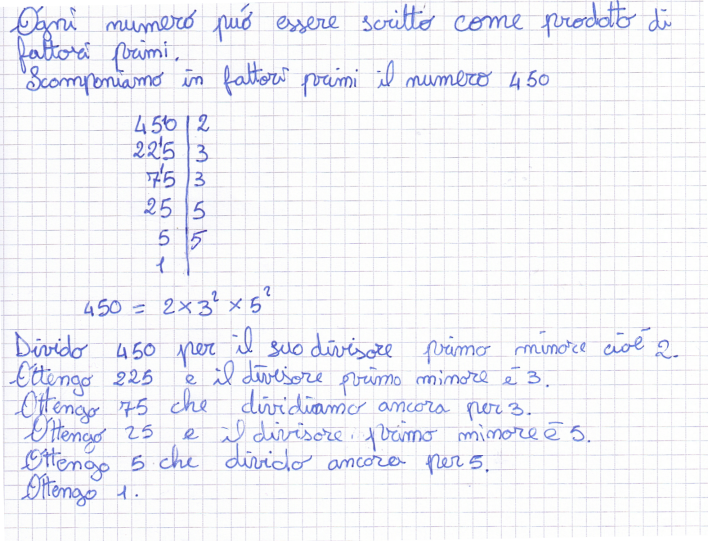 Ogni numero può essere scritto come prodotto di
fattori primi.
Scomponiamo in fattori primi il numero 450
450 | 2
225 | 3
75 | 3
25 | 5
5 | 5
1 |
450 = 2 × 3² × 5²
Divido 450 per il suo divisore primo minore cioè 2.
Ottengo 225 e il divisore primo minore è 3.
Ottengo 75 che dividiamo ancora per 3.
Ottengo 25 e il divisore primo minore è 5.
Ottengo 5 che divido ancora per 5.
Ottengo 1.